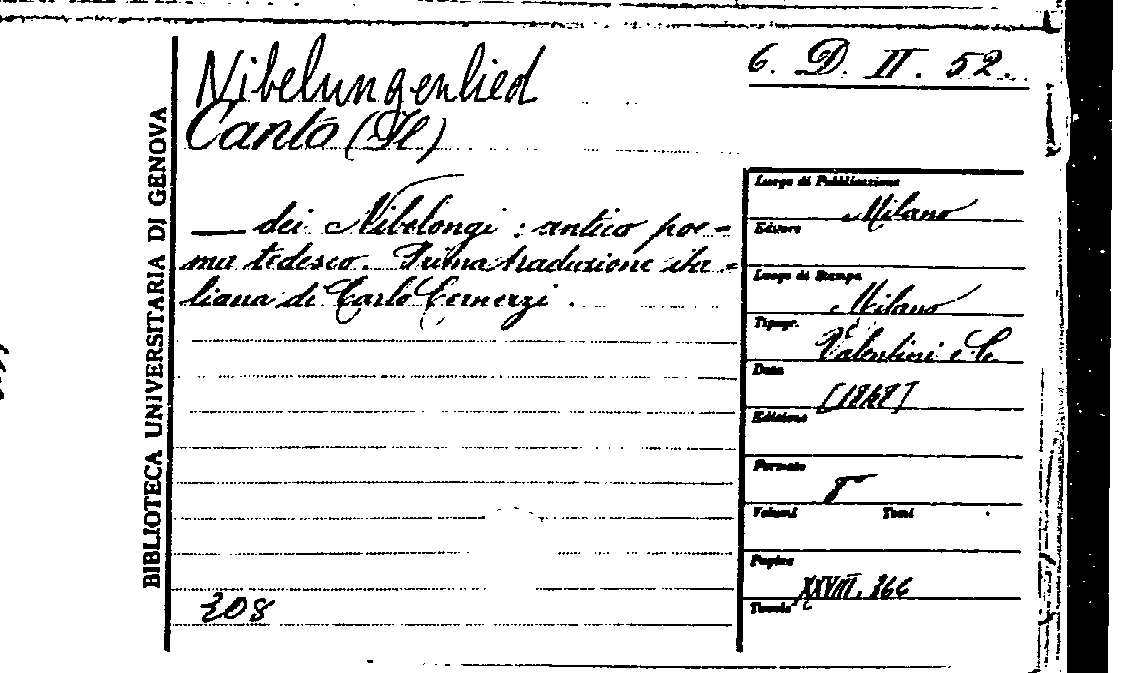 Nibelungenlied
Canto (Il)
6. D. II. 52.
— dei Nibelongi : antico poe=
ma tedesco. Prima traduzione ita=
liana di Carlo Cernezzi.
308
BIBLIOTECA UNIVERSITARIA DI GENOVA
Luogo di Pubblicazione
Milano
Editore
Luogo di Stampa
Milano
Tipogr.
Valentini e C.
Data
Edizione
Formato
8°
Volumi Tomi
Pagine
XXVIII, 366
Tavole